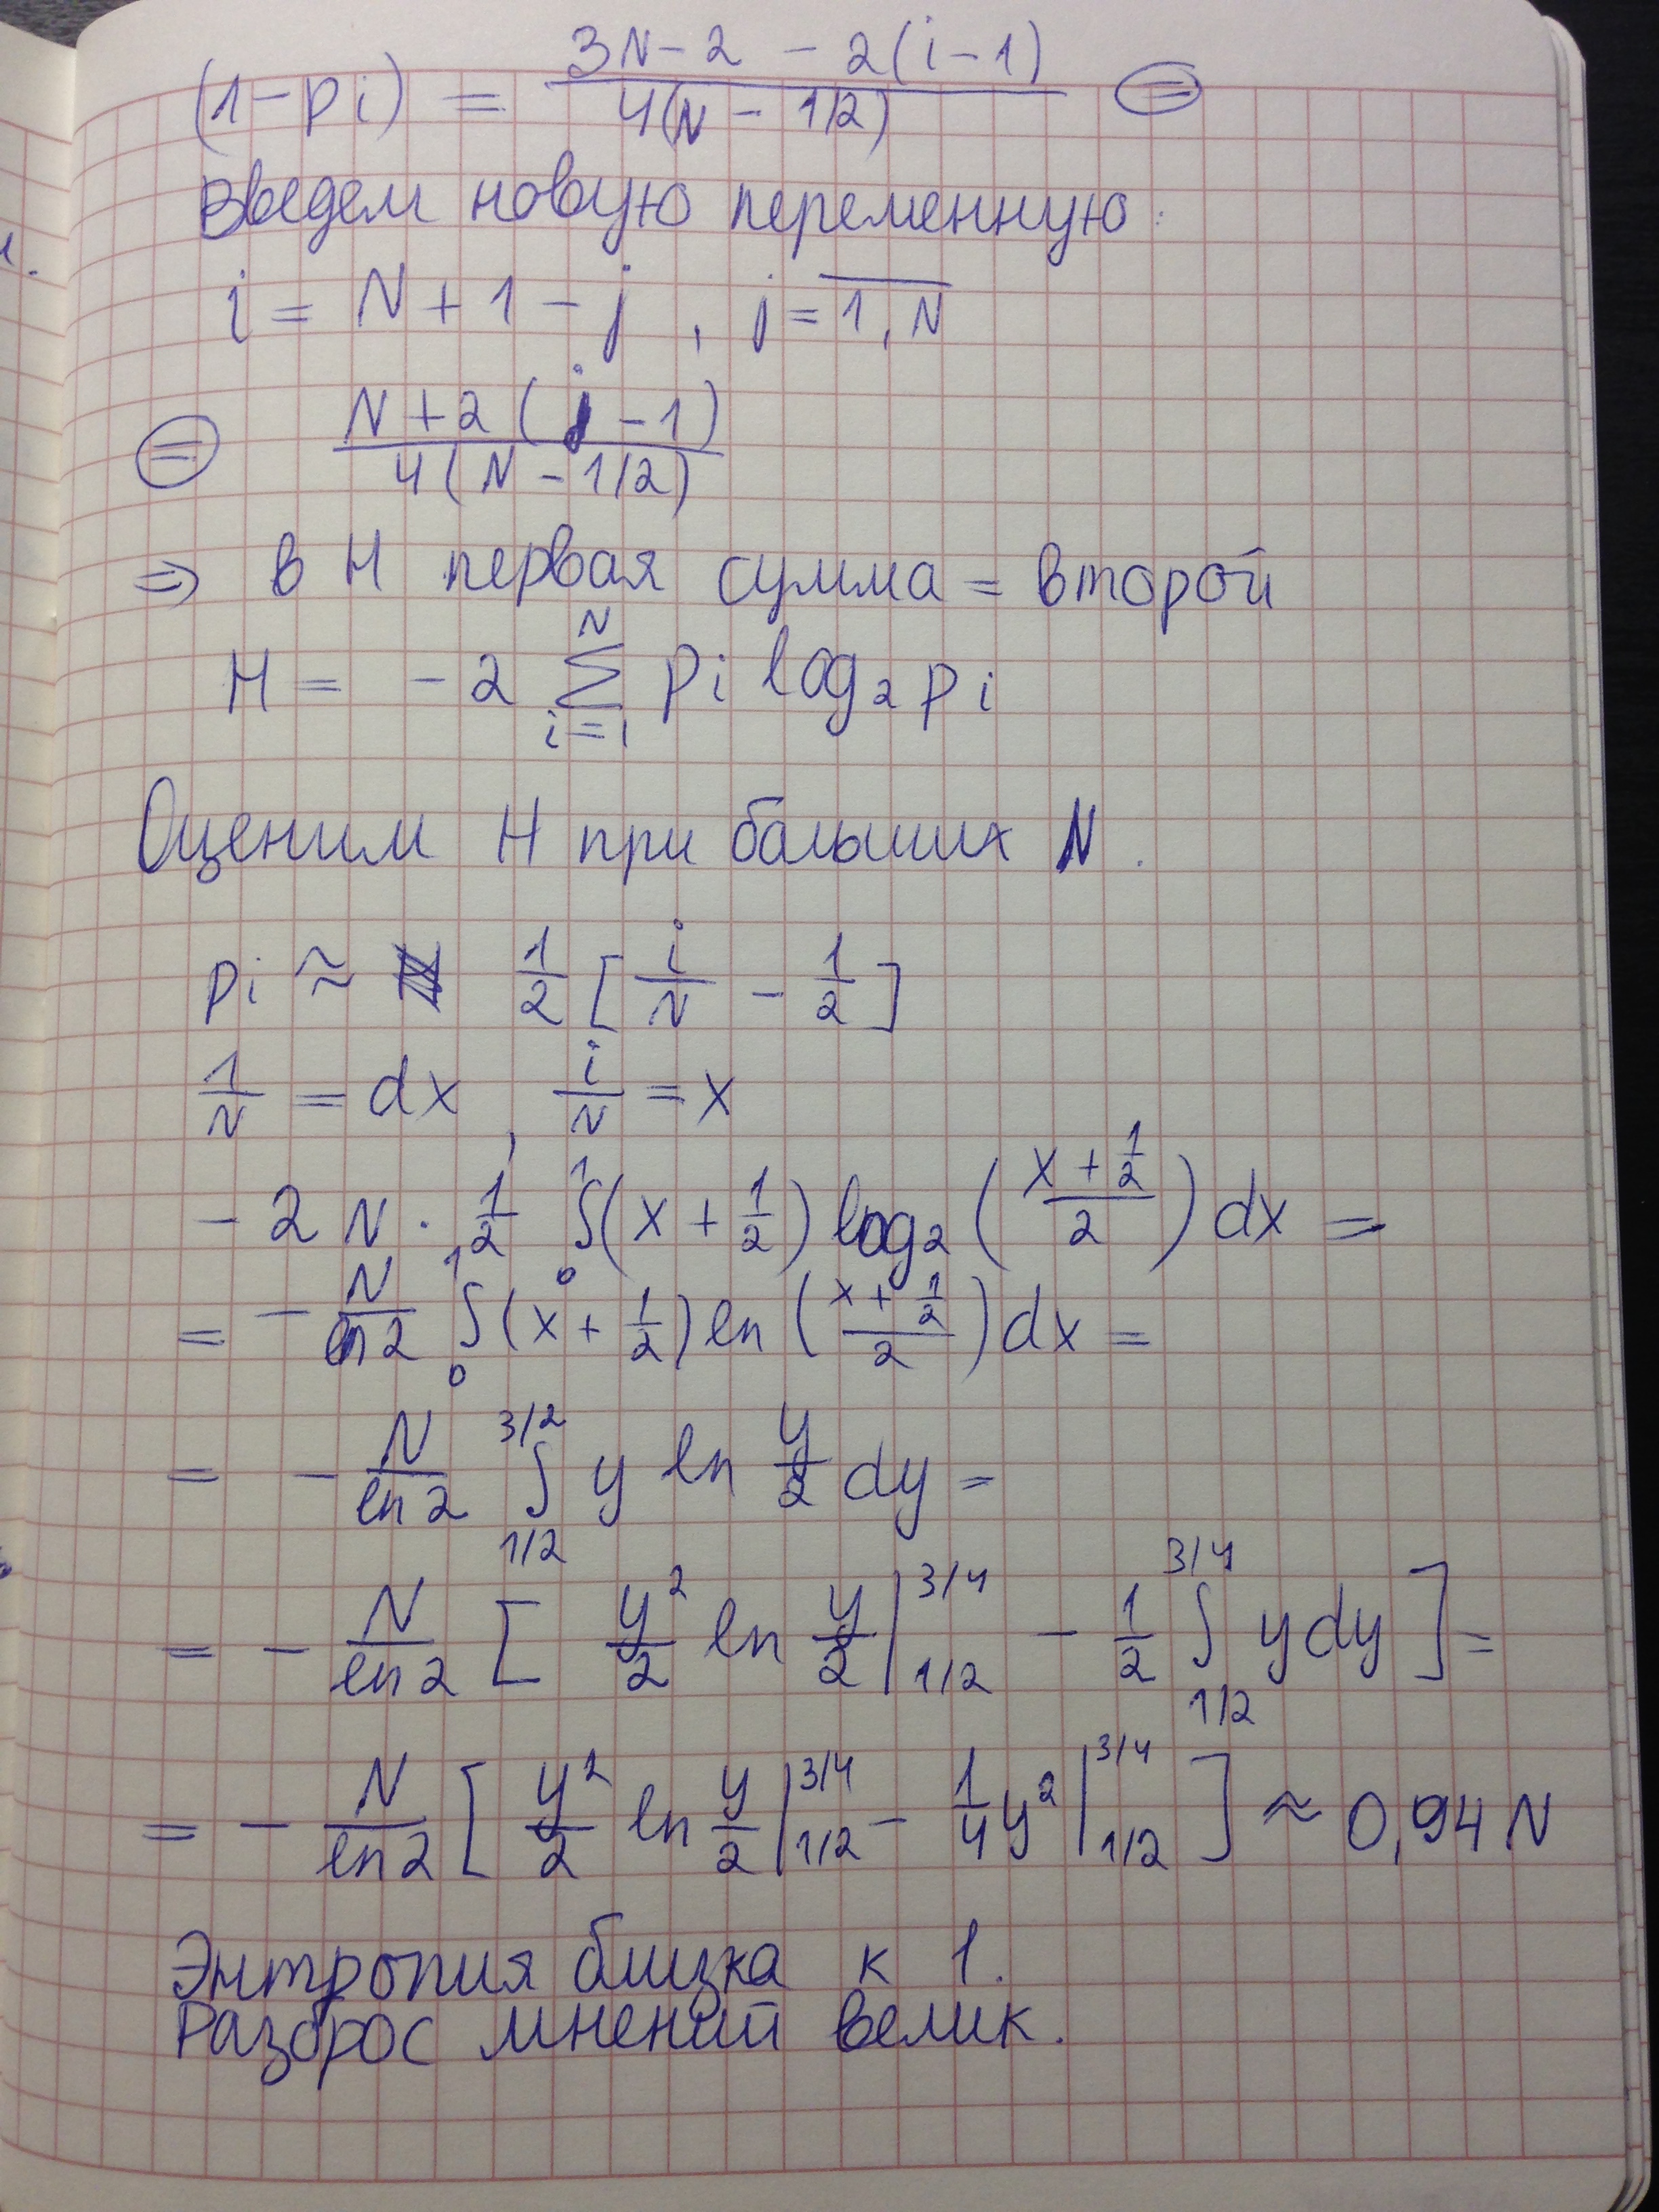 (1 - pi) = (3N - 2 - 2(i - 1)) / (4(N - 1/2)) ⊜
Введем новую переменную:
i = N + 1 - j , j = \overline{1, N}
⊜ (N + 2(j - 1)) / (4(N - 1/2))
⇒ в H первая сумма = второй
H = -2 \sum_{i=1}^{N} pi log₂ pi
Оценим H при больших N.
pi ≈ 1/2 [i/N - 1/2]
1/N = dx , i/N = x
-2N · 1/2 \int_0^1 (x + 1/2) log₂ ((x + 1/2)/2) dx =
= - N/ln2 \int_0^1 (x + 1/2) ln ((x + 1/2)/2) dx =
= - N/ln2 \int_{1/2}^{3/2} y ln y/2 dy =
= - N/ln2 [ y²/2 ln y/2 |_{1/2}^{3/4} - 1/2 \int_{1/2}^{3/4} y dy ] =
= - N/ln2 [ y²/2 ln y/2 |_{1/2}^{3/4} - 1/4 y² |_{1/2}^{3/4} ] ≈ 0,94 N
Энтропия близка к 1.
Разброс мнений велик.